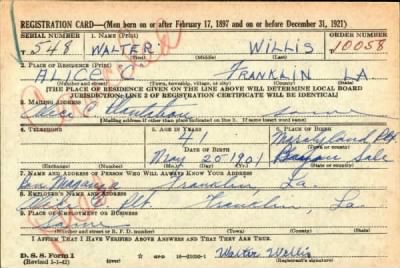 REGISTRATION CARD—(Men born on or after February 17, 1897 and on or before December 31, 1921)
SERIAL NUMBER 1. NAME (Print) ORDER NUMBER
T 548 WALTER WILLIS 10058
2. PLACE OF RESIDENCE (Print)
ALICE "C" FRANKLIN LA
(Number and street) (Town, township, village, or city) (County) (State)
[THE PLACE OF RESIDENCE GIVEN ON THE LINE ABOVE WILL DETERMINE LOCAL BOARD
JURISDICTION; LINE 2 OF REGISTRATION CERTIFICATE WILL BE IDENTICAL]
3. MAILING ADDRESS
Alice C Plantation Same
[Mailing address if other than place indicated on line 2. If same insert word same]
4. TELEPHONE 5. AGE IN YEARS 6. PLACE OF BIRTH
41 Maryland Plt.
DATE OF BIRTH
May 20 1901
(Exchange) (Number) (Mo.) (Day) (Yr.) (State or country)
7. NAME AND ADDRESS OF PERSON WHO WILL ALWAYS KNOW YOUR ADDRESS
Franklin, La.
8. EMPLOYER'S NAME AND ADDRESS
Alice C Plt Franklin, La.
9. PLACE OF EMPLOYMENT OR BUSINESS
Same
(Number and street or R. F. D. number) (Town) (County) (State)
I AFFIRM THAT I HAVE VERIFIED ABOVE ANSWERS AND THAT THEY ARE TRUE.
D. S. S. Form 1
(Revised 4-1-42) (over) Walter Willis